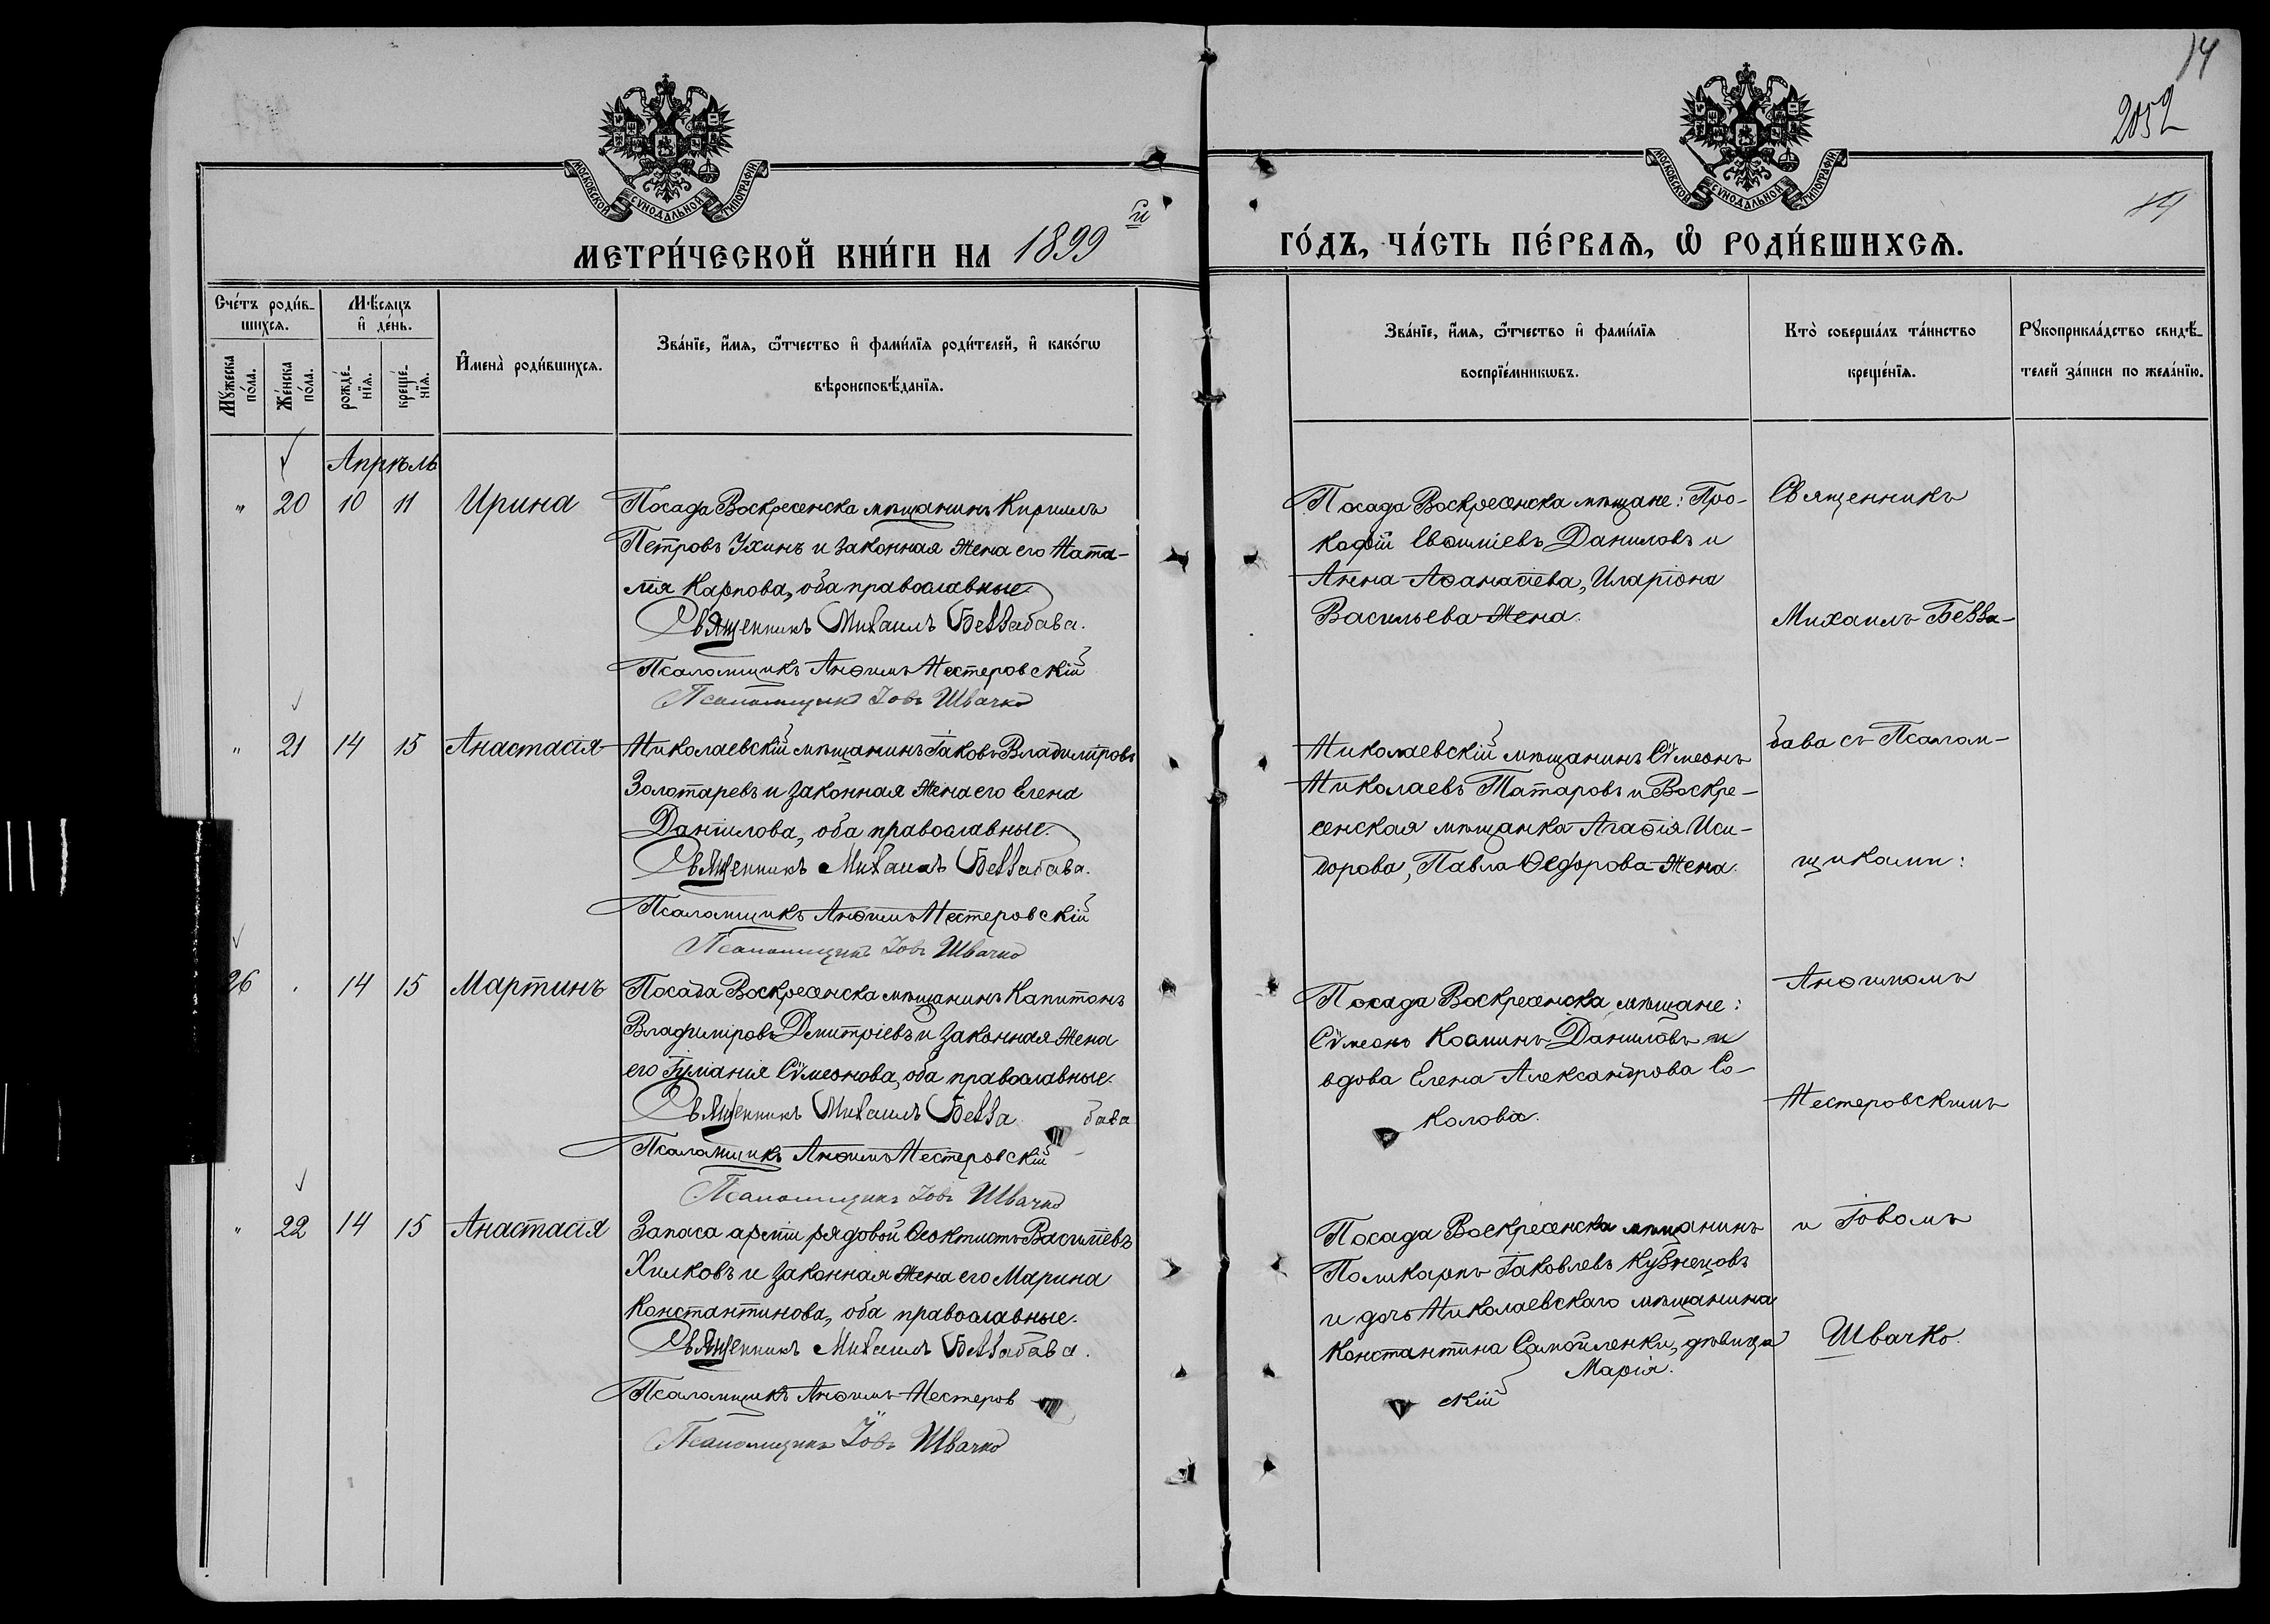 14
2052
МОСКОВСКОЙ СѴНОДАЛЬНОЙ ТИПОГРАФІИ
МОСКОВСКОЙ СѴНОДАЛЬНОЙ ТИПОГРАФІИ
14
МЕТРИ́ЧЕСКОЙ КНИ́ГИ НА 1899 й
ГО́ДЪ, ЧА́СТЬ ПЕ́РВАѦ, Ѡ РОДИ́ВШИХСѦ.
Сче́тъ роди́в-
шихсѧ.
Мѣ́сѧцъ
и҆ де́нь.
Мꙋ́жеска
по́ла.
Же́нска
по́ла.
рожде́-
нїѧ.
креще́-
нїѧ.
И҆мена̀ роди́вшихсѧ.
Зва́нїе, и҆́мѧ, ѻ҆́тчество и҆ фами́лїѧ роди́телей, и҆ како́гѡ
вѣроисповѣ́данїѧ.
Зва́нїе, и҆́мѧ, ѻ҆́тчество и҆ фами́лїѧ
воспрїе́мникѡвъ.
Кто̀ соверша́лъ та́инство
креще́нїѧ.
Рꙋкоприкла́дство свидѣ́-
телей за́писи по жела́нїю.
Апрѣль
" 20 10 11 Ирина
Посада Воскресенска мѣщанинъ Кириллъ
Петровъ Ухинъ и законная жена его Ната-
лія Карпова, оба православные.
Священникъ Михаилъ Беззабава.
Псаломщикъ Анѳимъ Нестеровскій
Псаломщикъ Іовъ Швачко
Посада Воскресенска мѣщане: Про-
кофій Евѳиміевъ Даниловъ и
Анна Аѳанасіева, Иларіона
Васильева жена.
Священникъ
Михаилъ Безза-
" 21 14 15 Анастасія
Николаевскій мѣщанинъ Іаковъ Владиміровъ
Золотаревъ и законная жена его Елена
Даніилова, оба православные.
Священникъ Михаилъ Беззабава.
Псаломщикъ Анѳимъ Нестеровскій
Псаломщикъ Іовъ Швачко
Николаевскій мѣщанинъ Сѵмеонъ
Николаевъ Татаровъ и Воскре-
сенская мѣщанка Агаѳія Иси-
дорова, Павла Ѳедорова жена.
бава съ Псалом-
щиками:
26 . 14 15 Мартинъ
Посада Воскресенска мѣщанинъ Капитонъ
Владиміровъ Дмитріевъ и законная жена
его Іуліанія Сѵмеонова, оба православные.
Священникъ Михаилъ Безза бава
Псаломщикъ Анѳимъ Нестеровскій
Псаломщикъ Іовъ Швачко
Посада Воскресенска мѣщане:
Сѵмеонъ Косминъ Даниловъ и
вдова Елена Александрова Со-
колова.
Анѳимомъ
Нестеровскимъ
" 22 14 15 Анастасія
Запаса арміи рядовой Ѳеоктистъ Василіевъ
Хилковъ и законная жена его Марина
Константинова, оба православные.
Священникъ Михаилъ Беззабава.
Псаломщикъ Анѳимъ Нестеров скій
Псаломщикъ Іовъ Швачко
Посада Воскресенска мѣщанинъ
Поликарпъ Іаковлевъ Кузнецовъ
и дочь Николаевскаго мѣщанина
Константина Самойленки, дѣвица
Марія.
и Іовомъ
Швачко.